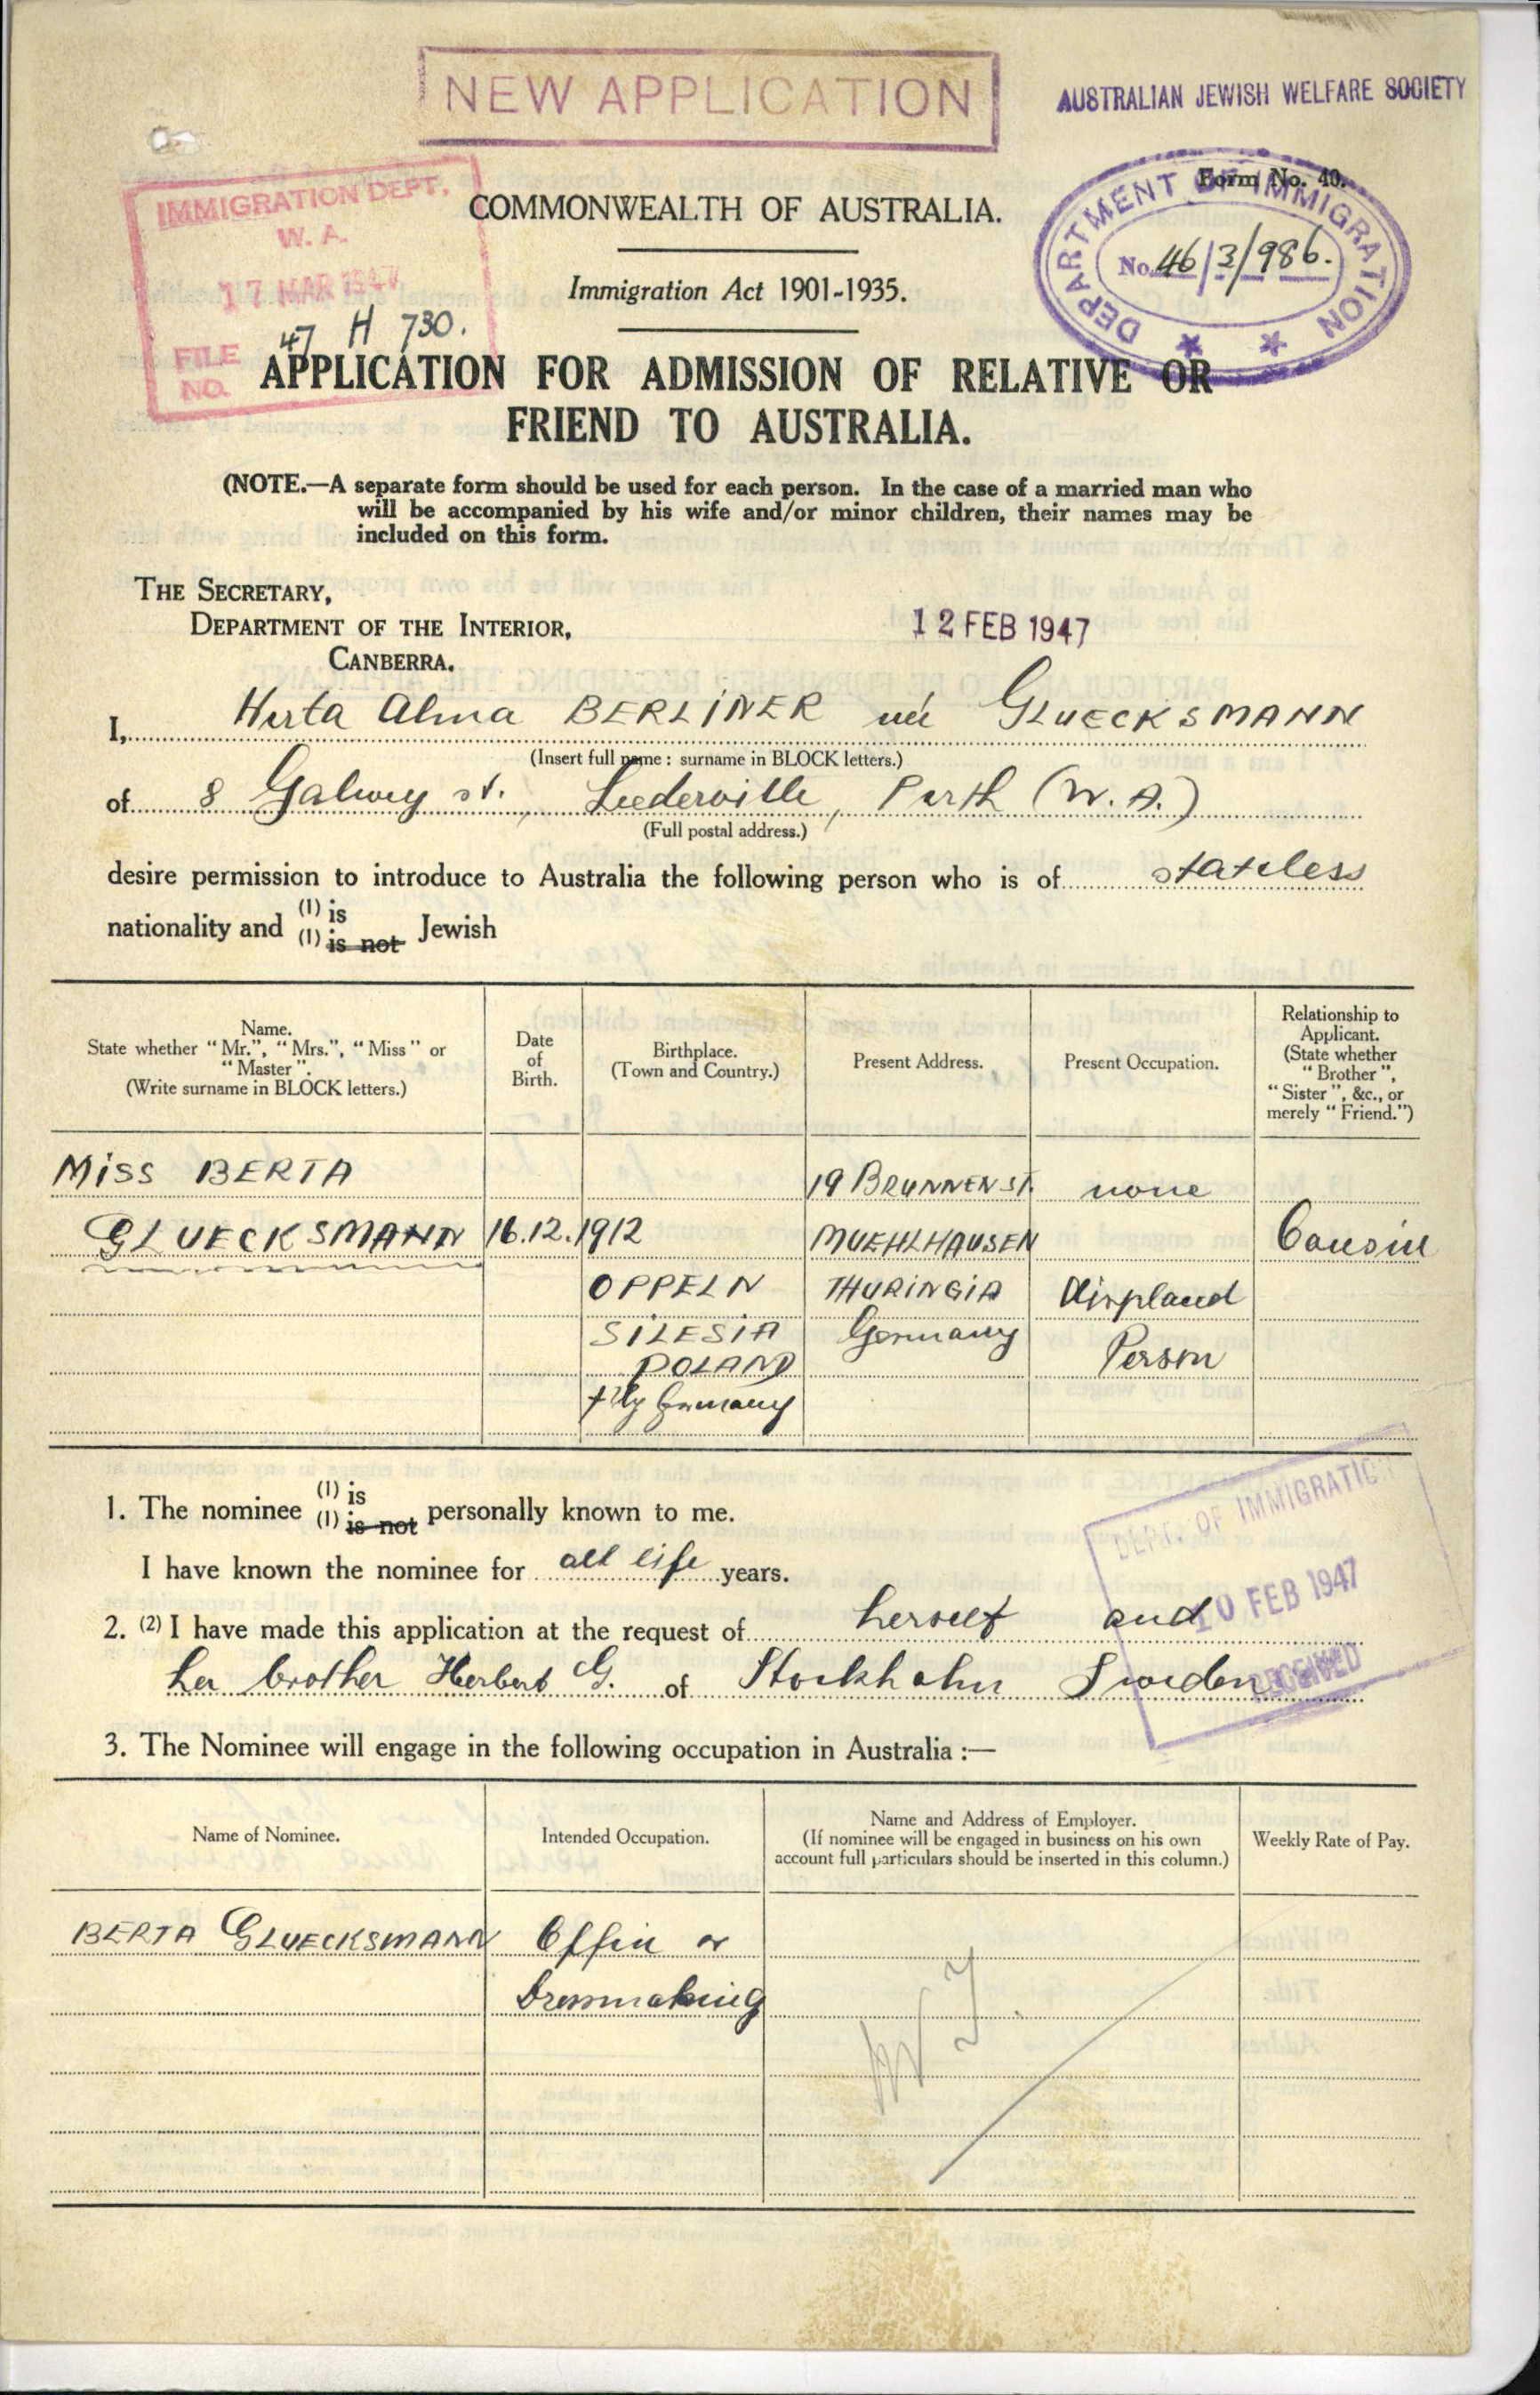 NEW APPLICATION
AUSTRALIAN JEWISH WELFARE SOCIETY
IMMIGRATION DEPT.
W. A.
17 MAR 1947
47 H 730.
FILE
NO.
Form No. 40.
DEPARTMENT OF IMMIGRATION
No. 46/3/986.
COMMONWEALTH OF AUSTRALIA.
Immigration Act 1901-1935.
APPLICATION FOR ADMISSION OF RELATIVE OR
FRIEND TO AUSTRALIA.
(NOTE.—A separate form should be used for each person. In the case of a married man who
will be accompanied by his wife and/or minor children, their names may be
included on this form.
THE SECRETARY,
DEPARTMENT OF THE INTERIOR,
CANBERRA.
12 FEB 1947
I, Herta Alma BERLINER née GLUECKSMANN
(Insert full name : surname in BLOCK letters.)
of 8 Galwey st., Leederville, Perth (W.A.)
(Full postal address.)
desire permission to introduce to Australia the following person who is of stateless
nationality and (1) is
(1) is not Jewish
Name.
State whether "Mr.", "Mrs.", "Miss" or
"Master".
(Write surname in BLOCK letters.)
Date
of
Birth.
Birthplace.
(Town and Country.)
Present Address.
Present Occupation.
Relationship to
Applicant.
(State whether
"Brother",
"Sister", &c., or
merely "Friend.")
MISS BERTA
19 BRUNNENST.
none
GLUECKSMANN
16.12.1912
MUEHLHAUSEN
Cousin
OPPELN
THURINGIA
Displaced
SILESIA
Germany
POLAND
Person
Germany
1. The nominee (1) is
(1) is not personally known to me.
I have known the nominee for all life years.
2. (2) I have made this application at the request of herself and
her brother Herbert G. of Stockholm Sweden
DEPT. OF IMMIGRATION
10 FEB 1947
RECEIVED
3. The Nominee will engage in the following occupation in Australia :—
Name of Nominee.
Intended Occupation.
Name and Address of Employer.
(If nominee will be engaged in business on his own
account full particulars should be inserted in this column.)
Weekly Rate of Pay.
BERTA GLUECKSMANN
Office or
Dressmaking